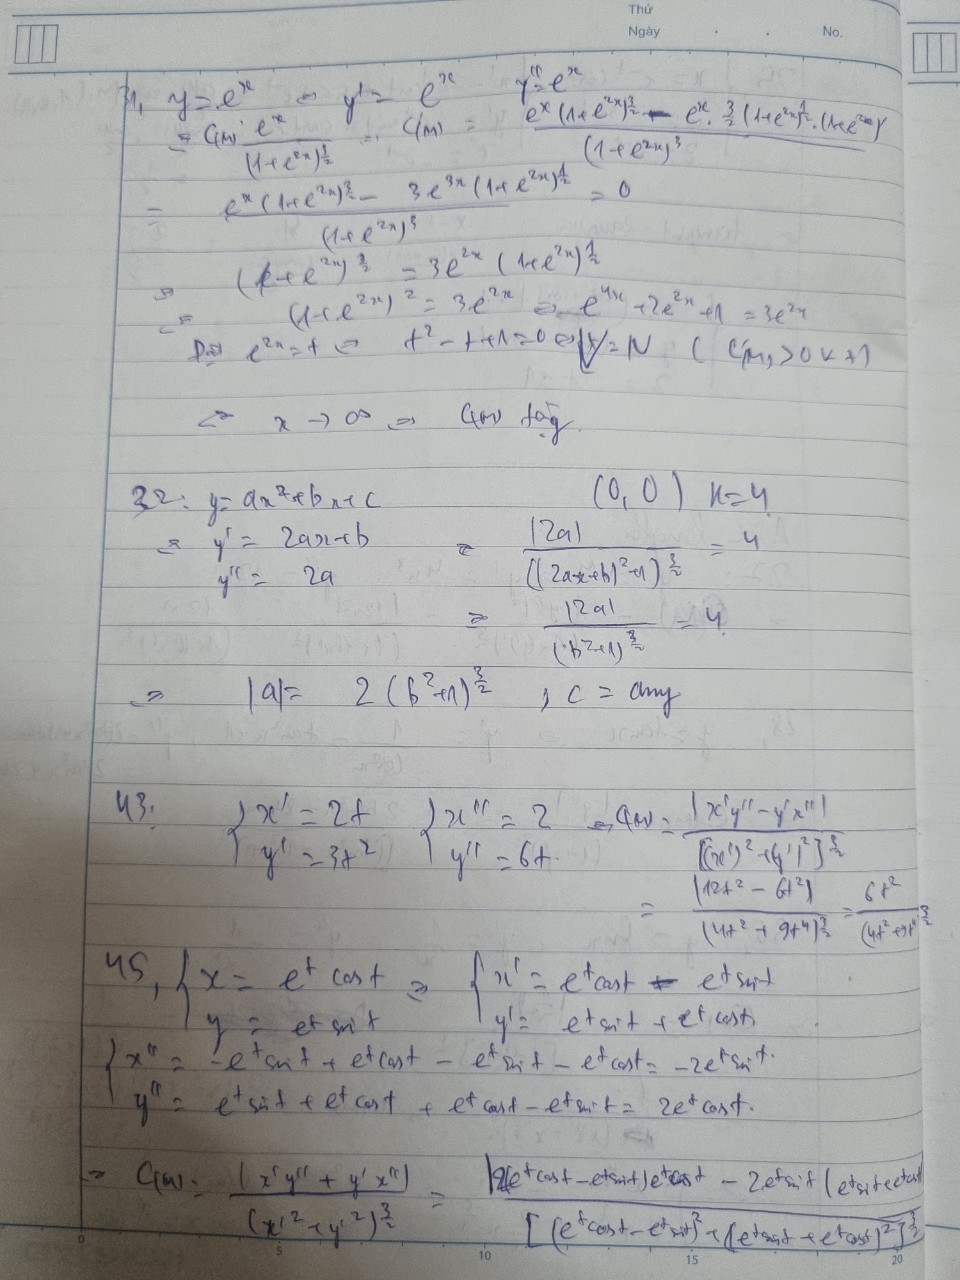 Thứ
Ngày No.
y = e^x ⇒ y' = e^x y'' = e^x
⇒ C(M) = e^x / (1+e^{2x})^{3/2} ⇒ C'(M) = [e^x (1+e^{2x})^{3/2} - e^x · 3/2 (1+e^{2x})^{1/2} · (1+e^{2x})'] / (1+e^{2x})^3
= [e^x (1+e^{2x})^{3/2} - 3e^{3x} (1+e^{2x})^{1/2}] / (1+e^{2x})^3 = 0
⇒ (1+e^{2x})^{3/2} = 3e^{2x} (1+e^{2x})^{1/2}
⇔ (1+e^{2x})^2 = 3e^{2x} ⇔ e^{4x} + 2e^{2x} + 1 = 3e^{2x}
Đặt e^{2x} = t ⇒ t^2 - t + 1 = 0 ⇔ VN (C'(M) > 0 ∀ t)
⇔ x → ∞ ⇒ C(M) tăng.
32: y = ax^2 + bx + c (0, 0) K = 4
⇒ y' = 2ax + b ⇒ |2a| / ((2ax+b)^2 + 1)^{3/2} = 4
y'' = 2a
⇒ |2a| / (b^2+1)^{3/2} = 4
⇒ |a| = 2(b^2+1)^{3/2} , c = any
43: { x' = 2t { x'' = 2 ⇒ C(M) = |x'y'' - y'x''| / [(x')^2 + (y')^2]^{3/2}
y' = 3t^2 y'' = 6t
= |12t^2 - 6t^2| / (4t^2 + 9t^4)^{3/2} = 6t^2 / (4t^2 + 9t^4)^{3/2}
45, { x = e^t cos t ⇒ { x' = e^t cos t - e^t sin t
y = e^t sin t y' = e^t sin t + e^t cos t
{ x'' = -e^t sin t + e^t cos t - e^t sin t - e^t cos t = -2e^t sin t
y'' = e^t sin t + e^t cos t + e^t cos t - e^t sin t = 2e^t cos t.
⇒ C(M) = (x'y'' + y'x'') / (x'^2 + y'^2)^{3/2} = |2(e^t cos t - e^t sin t) e^t cos t - 2e^t sin t (e^t sin t + e^t cos t / [(e^t cos t - e^t sin t)^2 + (e^t sin t + e^t cos t)^2]^{3/2}
0 5 10 15 20